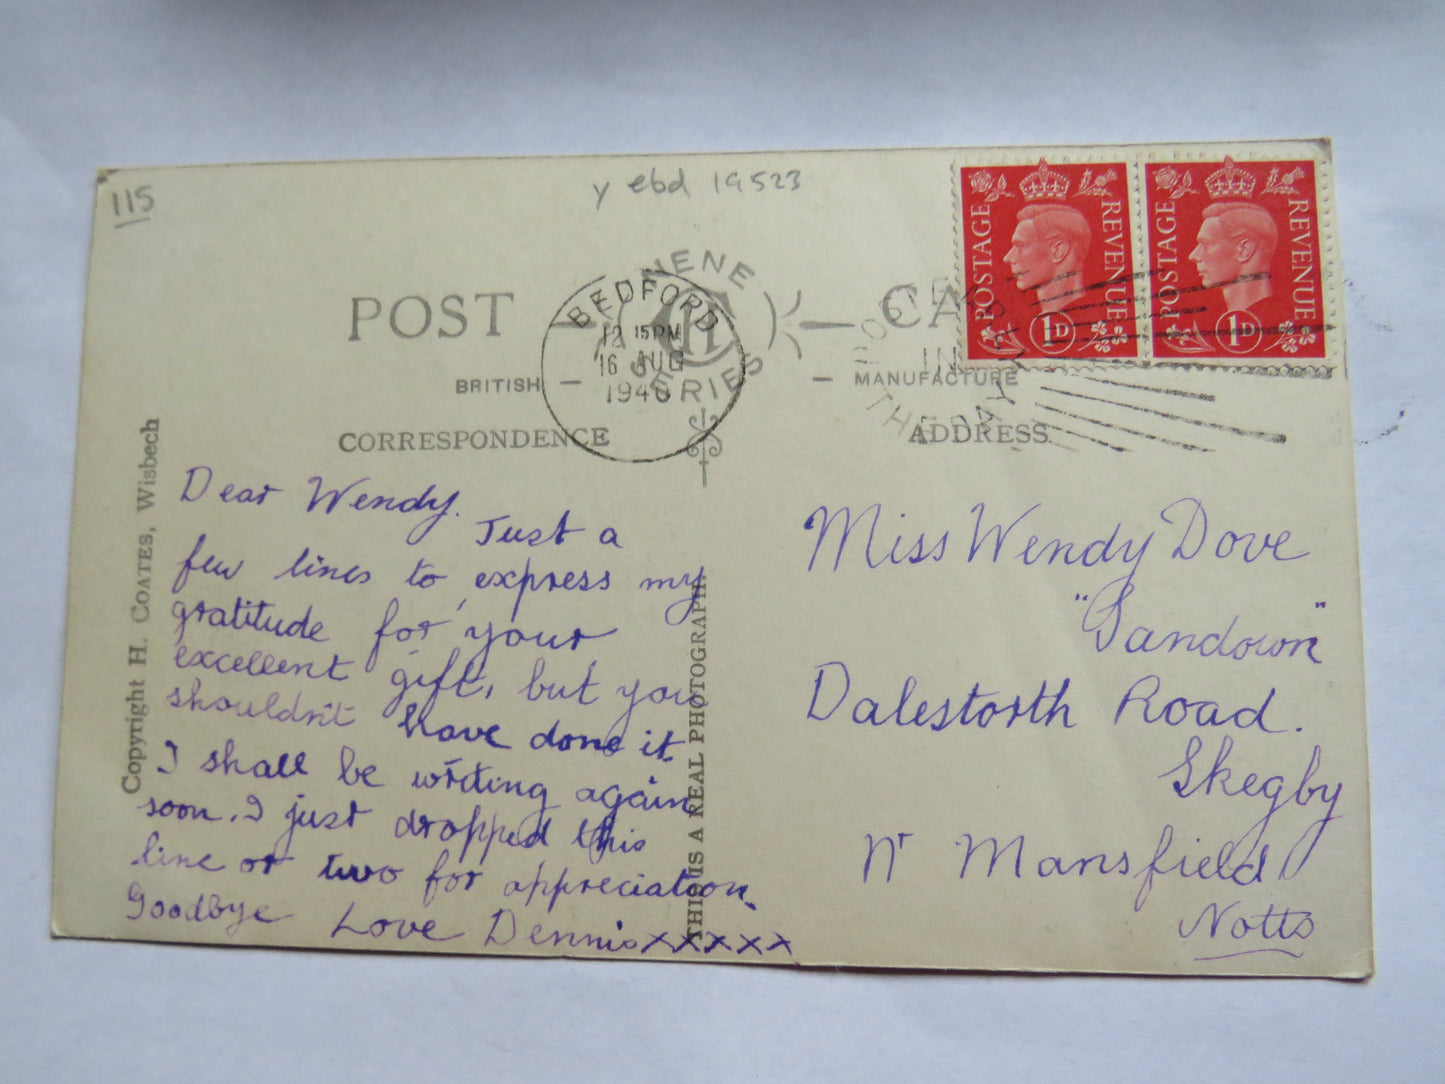 115
y ebd 19523
POST
CA
NENE
SERIES
BRITISH
MANUFACTURE
BEDFORD
12 15PM
16 AUG
194
POSTAGE REVENUE
1D
POSTAGE REVENUE
1D
IN
THE DAY
CORRESPONDENCE
ADDRESS
Copyright H. COATES, Wisbech
THIS IS A REAL PHOTOGRAPH.
Dear Wendy.
Just a
few lines to express my
gratitude for your
excellent gift, but you
shouldn't have done it
I shall be writing again
soon. I just dropped this
line or two for appreciation.
Goodbye Love Dennis xxxxx
Miss Wendy Dove
"Sandown"
Dalestorth Road.
Skegby
Nr Mansfield
Notts